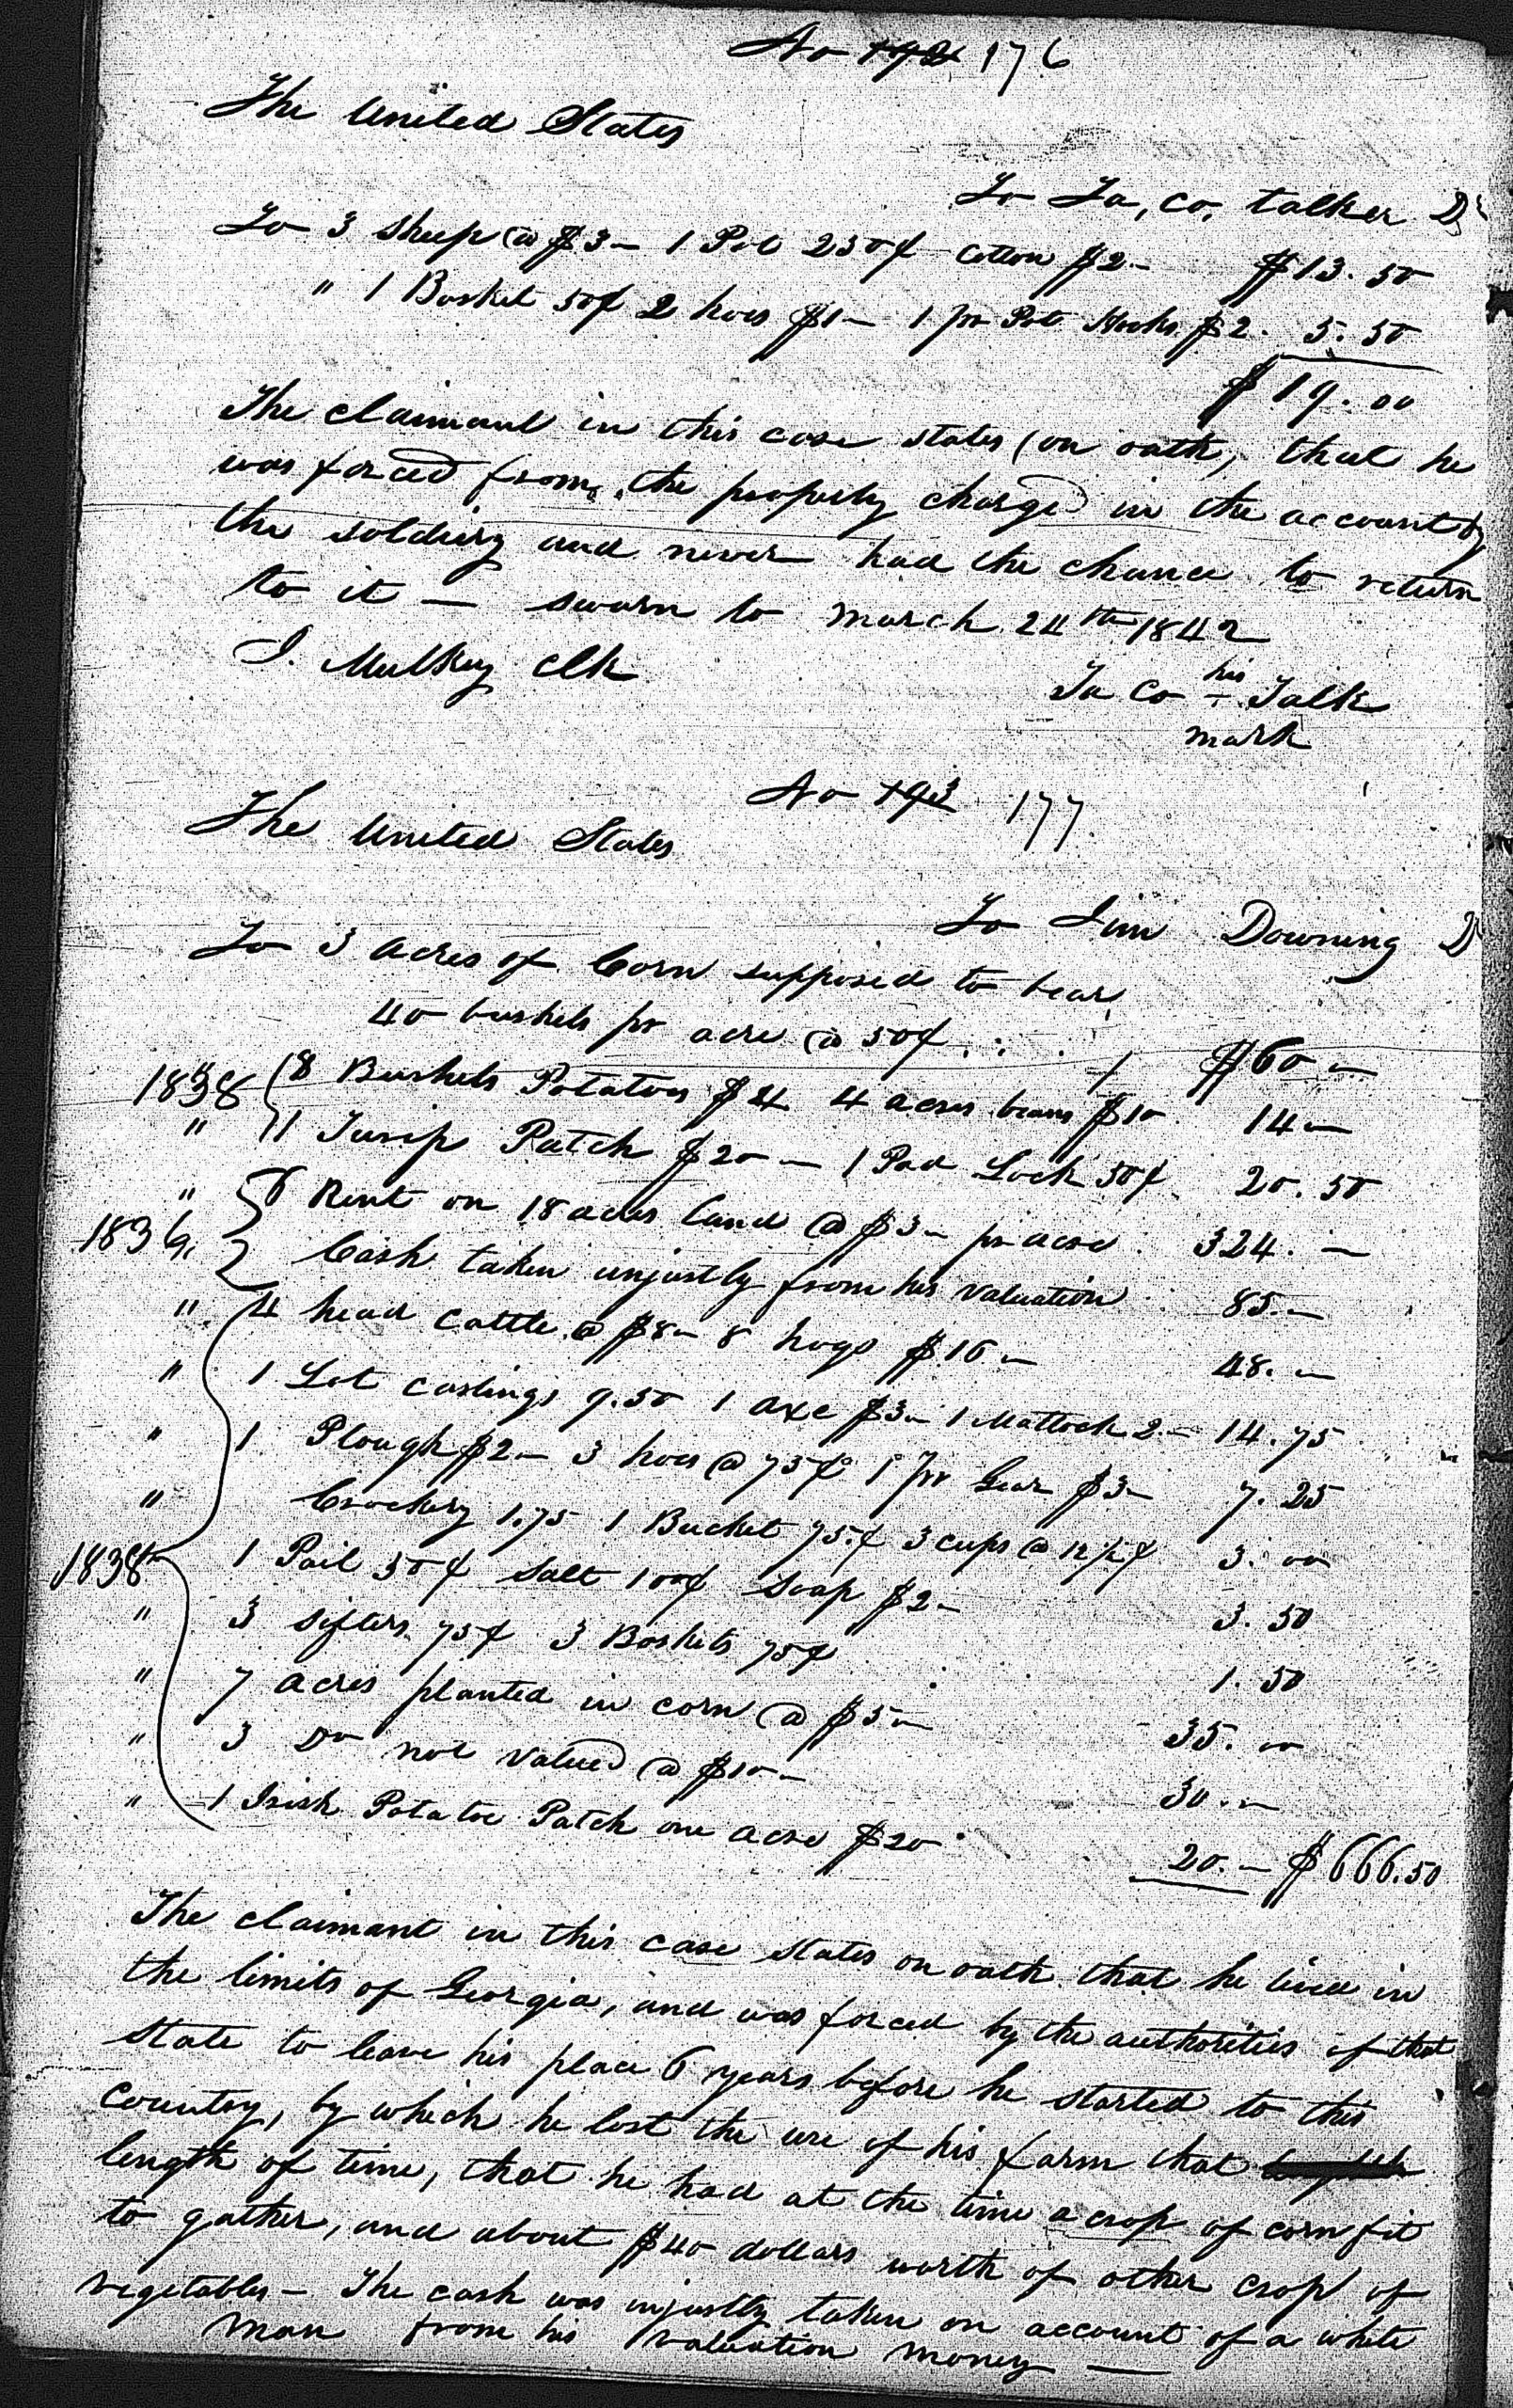 No 192 176
The United States
To Ta, co, talker Dr
To 3 Sheep @ $3– 1 Pot 250¢ Cotton $2.– $13.50
" 1 Basket 50¢ 2 hoes $1– 1 pr Pot Hooks $2. 5.50
$19.00
The claimant in this case states (on oath, that he
was forced from the property charged in the account by
the soldiery and never had the chance to return
to it — sworn to March 24th 1842
J. Mulkey Clk
Ta Co his Talk
mark
No 193 177.
The United States
To Jim Downing Dr
To 3 acres of Corn supposed to bear
40 bushels pr acre @ 50¢ . . . $60–
1838 " 8 Bushels Potatoes $4 4 acres beans $10 14–
" 1 Turnip Patch $20– 1 Pad Lock 50¢ 20.50
" 6 Rent on 18 acres land @ $3– pr acre 324.–
1836 Cash taken unjustly from his valuation 85.–
" 4 head Cattle @ $8– 8 hogs $16– 48.–
" 1 Lot castings 9.50 1 axe $3– 1 Mattock 2.– 14.75
" 1 Plough $2– 3 hoes @ 75¢ 1 pr Gear $3– 7.25
" Crockery 1.75 1 Bucket 75.¢ 3 cups @ 12½¢ 3.00
1838 1 Pail 50¢ Salt 100¢ Soap $2– 3.50
" 3 sifters 75¢ 3 Baskets 75¢ 1.50
" 7 acres planted in corn @ $5– 35.00
" 3 Do not valued @ $10– 30.–
" 1 Irish Potatoe Patch one acre $20 20.– $666.50
The claimant in this case states on oath that he lived in
the limits of Georgia, and was forced by the authorities of that
State to leave his place 6 years before he started to this
Country, by which he lost the use of his farm that
length of time, that he had at the time a crop of corn fit
to gather, and about $40 dollars worth of other crop of
vegetables – The cash was unjustly taken on account of a white
man from his valuation money —